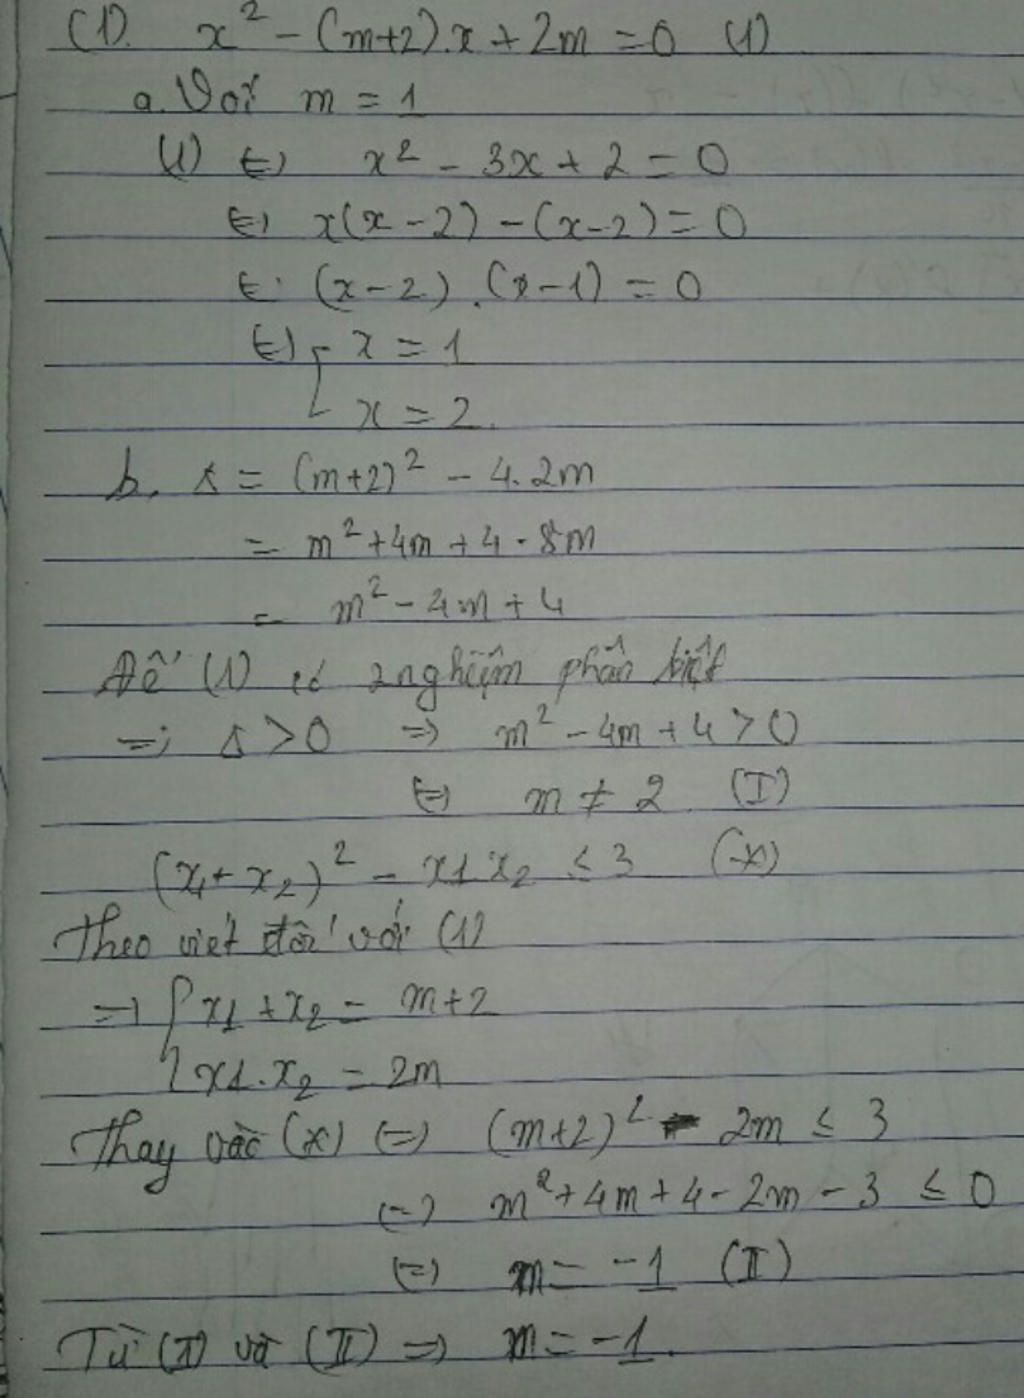 (1). x² - (m+2).x + 2m = 0 (1)
a. Với m = 1
(1) ⇔ x² - 3x + 2 = 0
⇔ x(x-2) - (x-2) = 0
⇔ (x-2).(x-1) = 0
⇔ [ x = 1
x = 2.
b. Δ = (m+2)² - 4.2m
= m² + 4m + 4 - 8m
= m² - 4m + 4
Để (1) có 2 nghiệm phân biệt
=> Δ > 0 => m² - 4m + 4 > 0
⇔ m ≠ 2 (I)
(x1 + x2)² - x1 x2 ≤ 3 (*)
Theo viét đối với (1)
=> { x1 + x2 = m+2
x1.x2 = 2m
Thay vào (*) ⇔ (m+2)² - 2m ≤ 3
⇔ m² + 4m + 4 - 2m - 3 ≤ 0
⇔ m = -1 (II)
Từ (I) và (II) => m = -1.